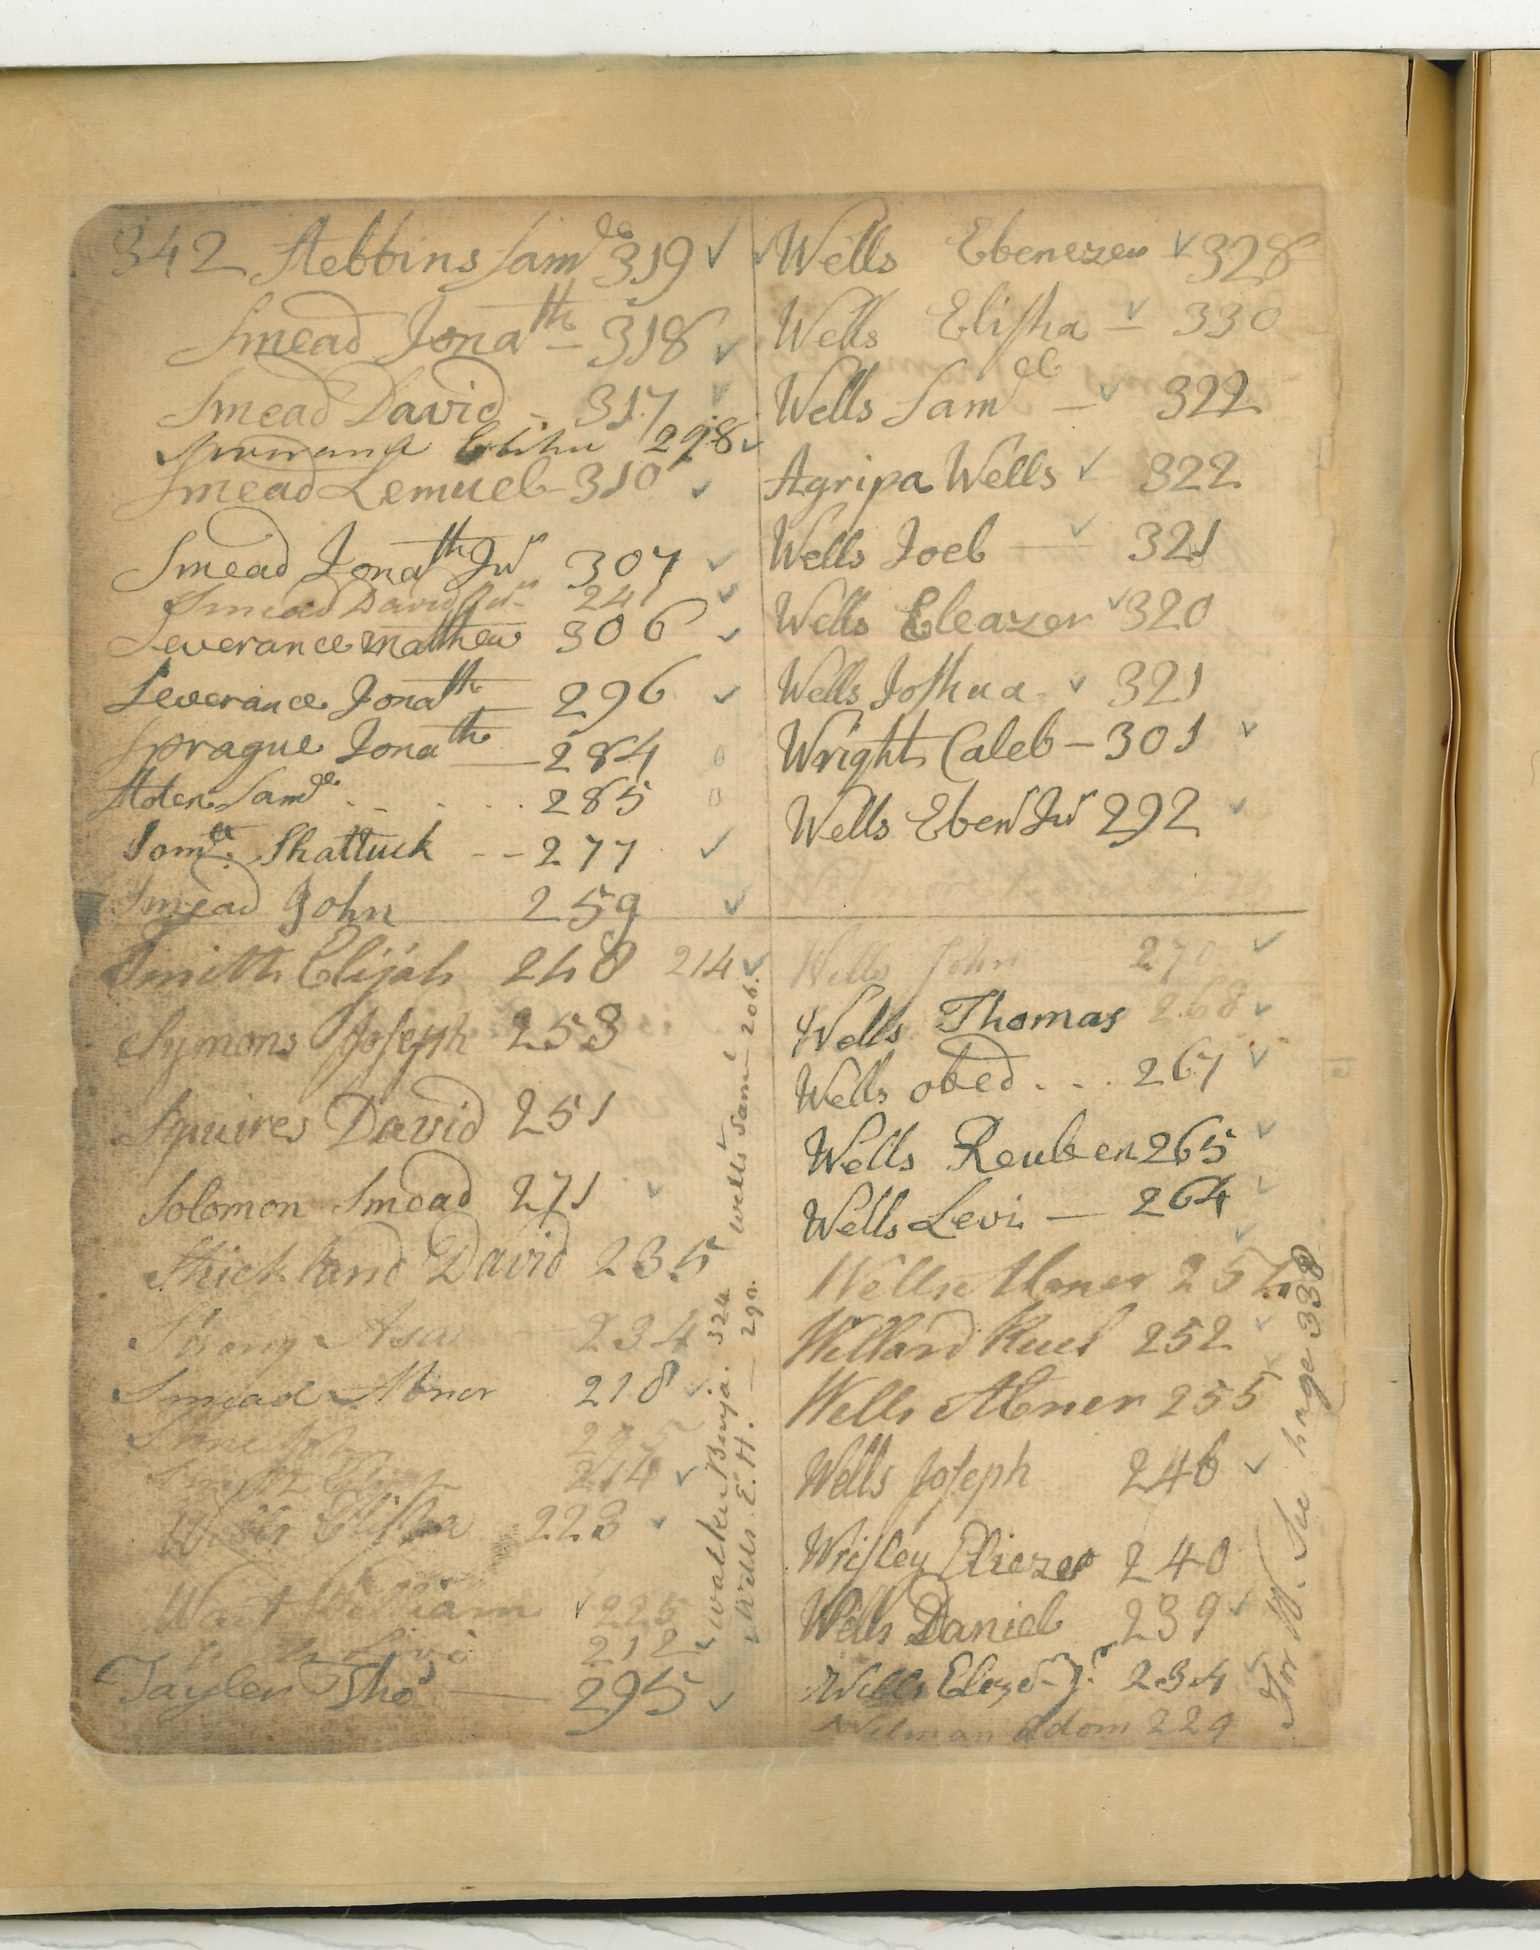 342 Stebbins Sam^ll 319
Smead Jona^th — 318
Smead David - 317
Elihu 298
Smead Lemuel - 310
Smead Jona^th Ju^r 307
Smead David Ju^r 241
Severance Mathew 306
Severance Jona^th — 296
Sprague Jona^th — 284
Sam^ll . . . . 285
Sam^ll Shattuck - - 277
Smead John 259
Smith Elijah 248 214
Symons Joseph 253
Squires David 251
Solomon Smead 271
Strickland David 235
Strong Asa 234
Smead Abner 218
214
Wells Elisha 223
Wait William 225
212
Tayler Tho^s — 295
Wells Sam^l — 206.
Walker Benja. 324
Wells. E. H. — 290.
Wells Ebenezer 328
Wells Elisha — 330
Wells Sam^ll — 322
Agripa Wells 322
Wells Joel — 321
Wells Eleazer 320
Wells Joshua - 321
Wright Caleb — 301
Wells Eben^r Ju^r 292
Wells John 270
Wells Thomas 268
Wells obed . . . 267
Wells Reuben 265
Wells Levi — 264
Wells Abner 254
Willard Ruel 252
Wells Abner 255
Wells Joseph 246
Wrisley Eliezer 240
Wells Daniel 239
Wells Eleze^r J^r 234
Adom 229
For W. See page 338